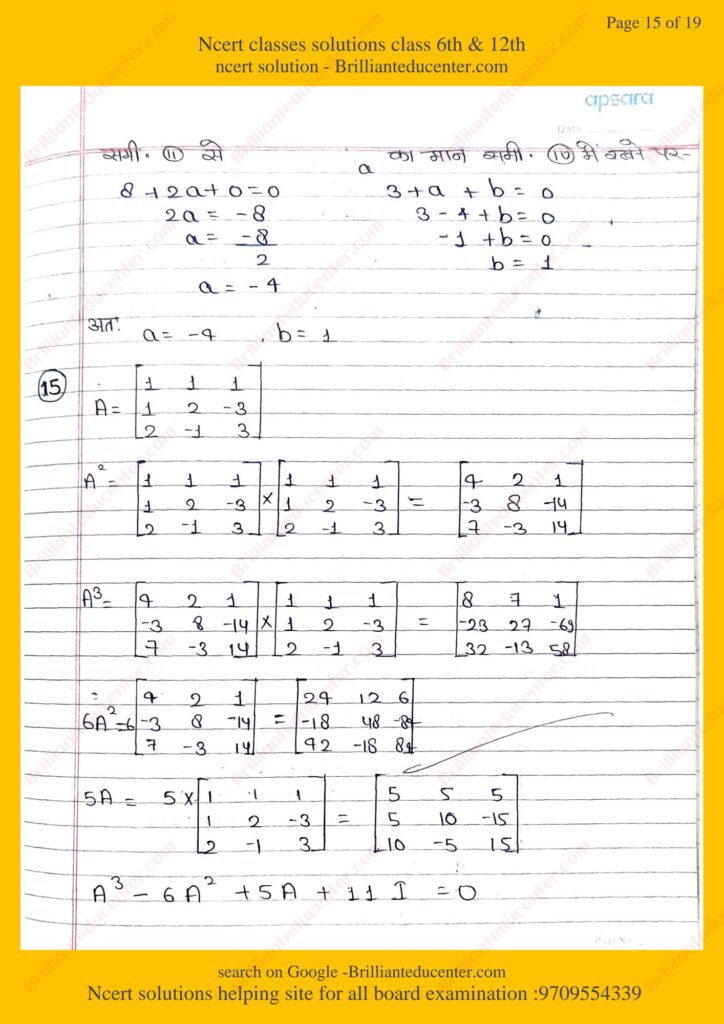 Page 15 of 19
Ncert classes solutions class 6th & 12th
ncert solution - Brillianteducenter.com
apsara
Date
समी. (ii) से
8 + 2a + 0 = 0
2a = -8
a = -8
2
a = -4
a का मान समी. (iv) में रखने पर-
3 + a + b = 0
3 - 4 + b = 0
-1 + b = 0
b = 1
अतः a = -4 , b = 1
15
A = [1 1 1
1 2 -3
2 -1 3]
A² = [1 1 1
1 2 -3
2 -1 3] × [1 1 1
1 2 -3
2 -1 3] = [4 2 1
-3 8 -14
7 -3 14]
A³ = [4 2 1
-3 8 -14
7 -3 14] × [1 1 1
1 2 -3
2 -1 3] = [8 7 1
-23 27 -69
32 -13 58]
=
6A² = 6 [4 2 1
-3 8 -14
7 -3 14] = [24 12 6
-18 48 -84
42 -18 84]
5A = 5 × [1 1 1
1 2 -3
2 -1 3] = [5 5 5
5 10 -15
10 -5 15]
A³ - 6A² + 5A + 11 I = 0
search on Google -Brillianteducenter.com
Ncert solutions helping site for all board examination :9709554339